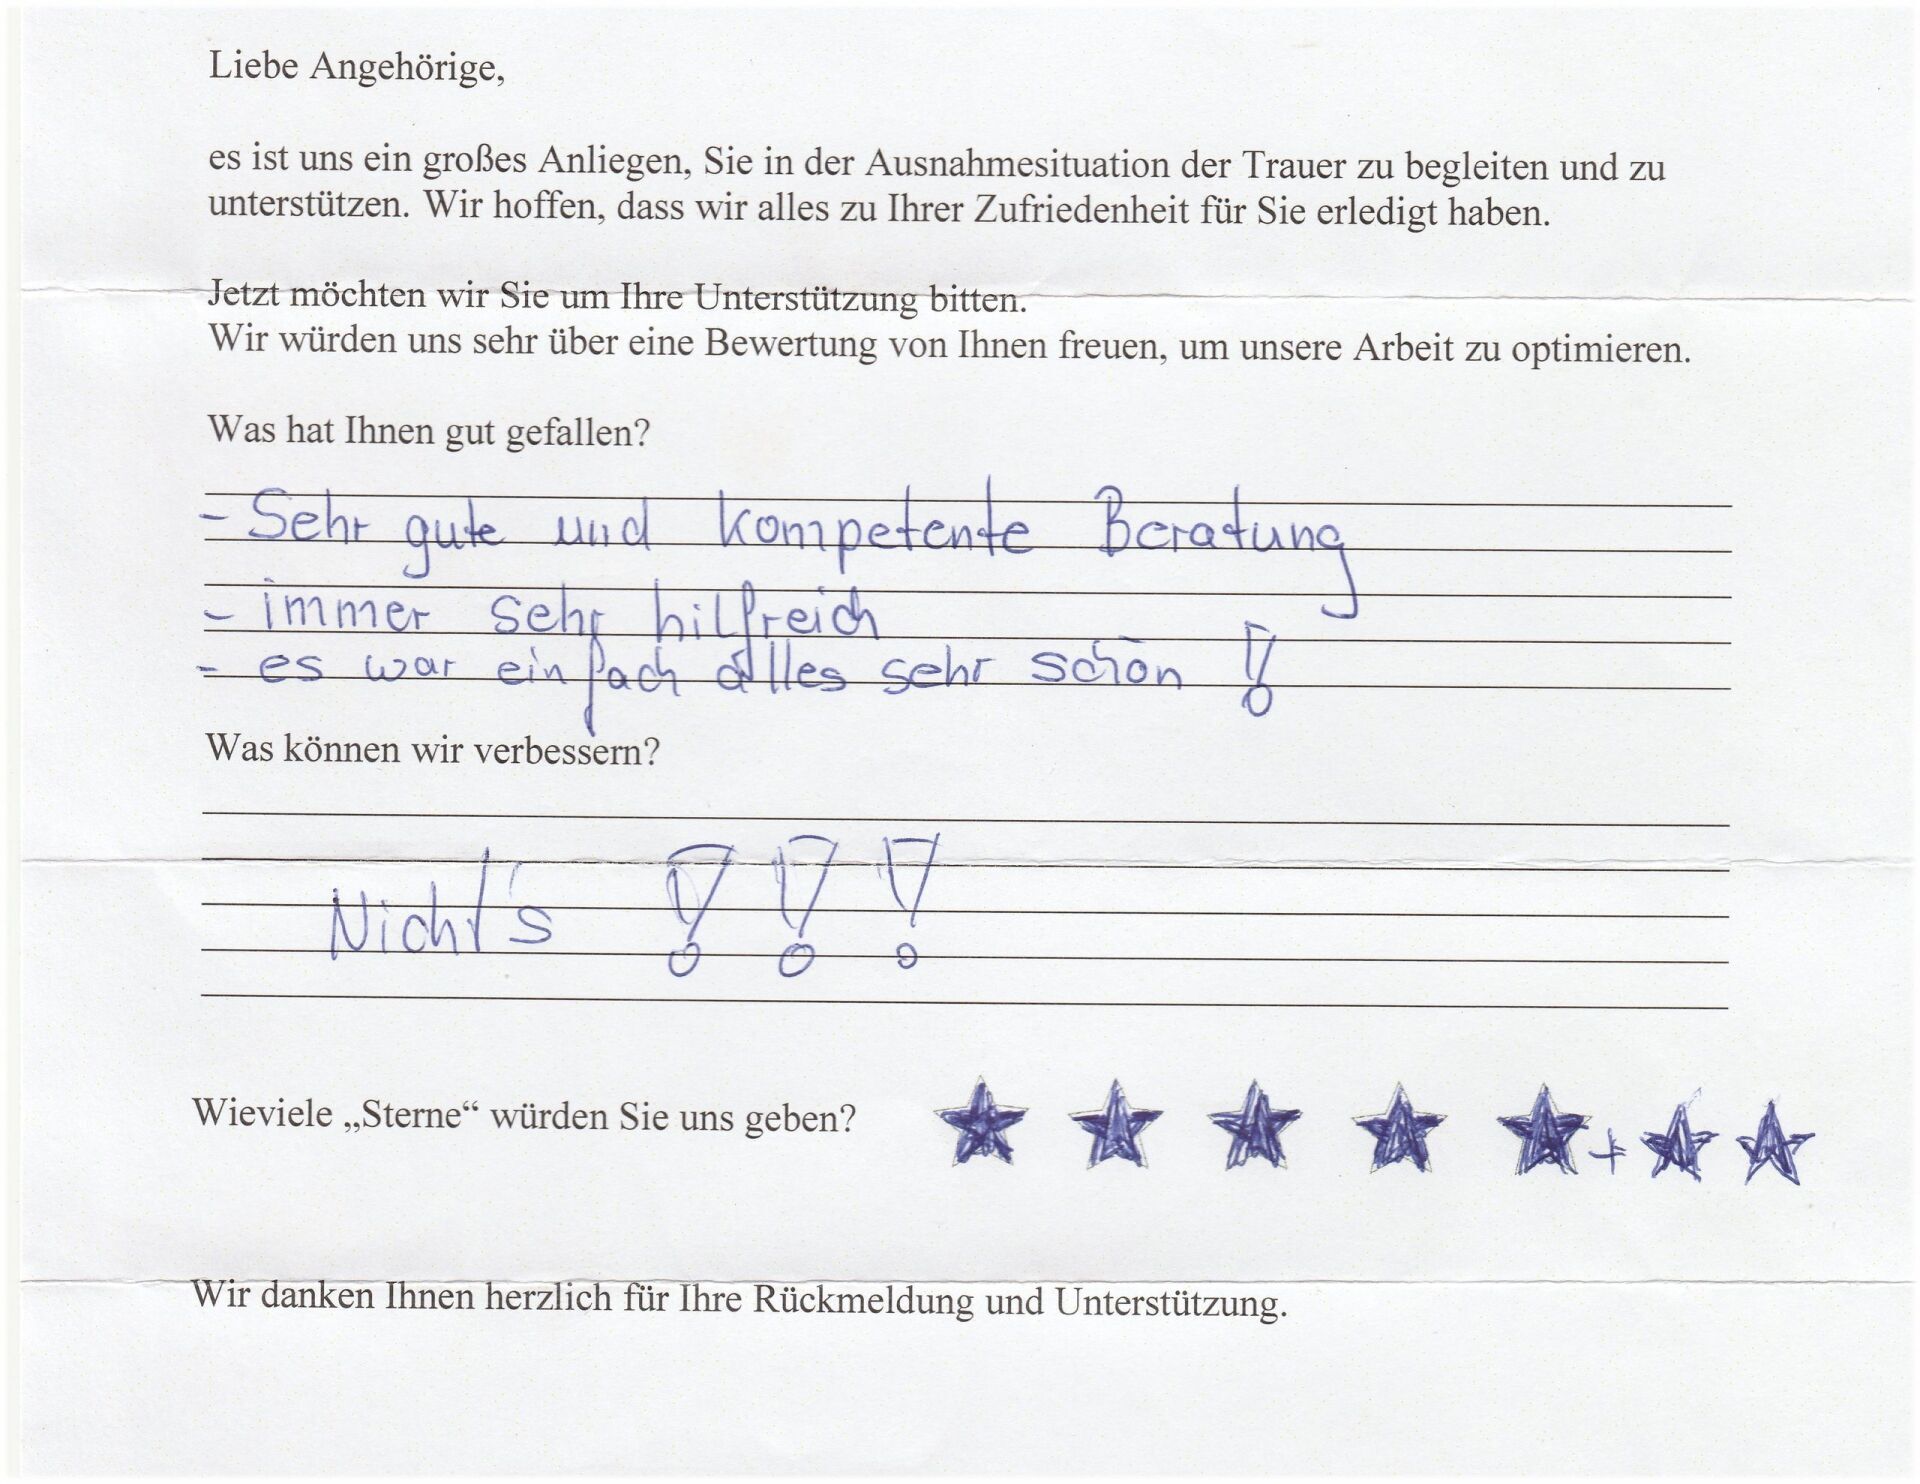 Liebe Angehörige,
es ist uns ein großes Anliegen, Sie in der Ausnahmesituation der Trauer zu begleiten und zu
unterstützen. Wir hoffen, dass wir alles zu Ihrer Zufriedenheit für Sie erledigt haben.
Jetzt möchten wir Sie um Ihre Unterstützung bitten.
Wir würden uns sehr über eine Bewertung von Ihnen freuen, um unsere Arbeit zu optimieren.
Was hat Ihnen gut gefallen?
- Sehr gute und kompetente Beratung
- immer sehr hilfreich
- es war einfach alles sehr schön !
Was können wir verbessern?
Nicht's ! ! !
Wieviele „Sterne“ würden Sie uns geben? +
Wir danken Ihnen herzlich für Ihre Rückmeldung und Unterstützung.